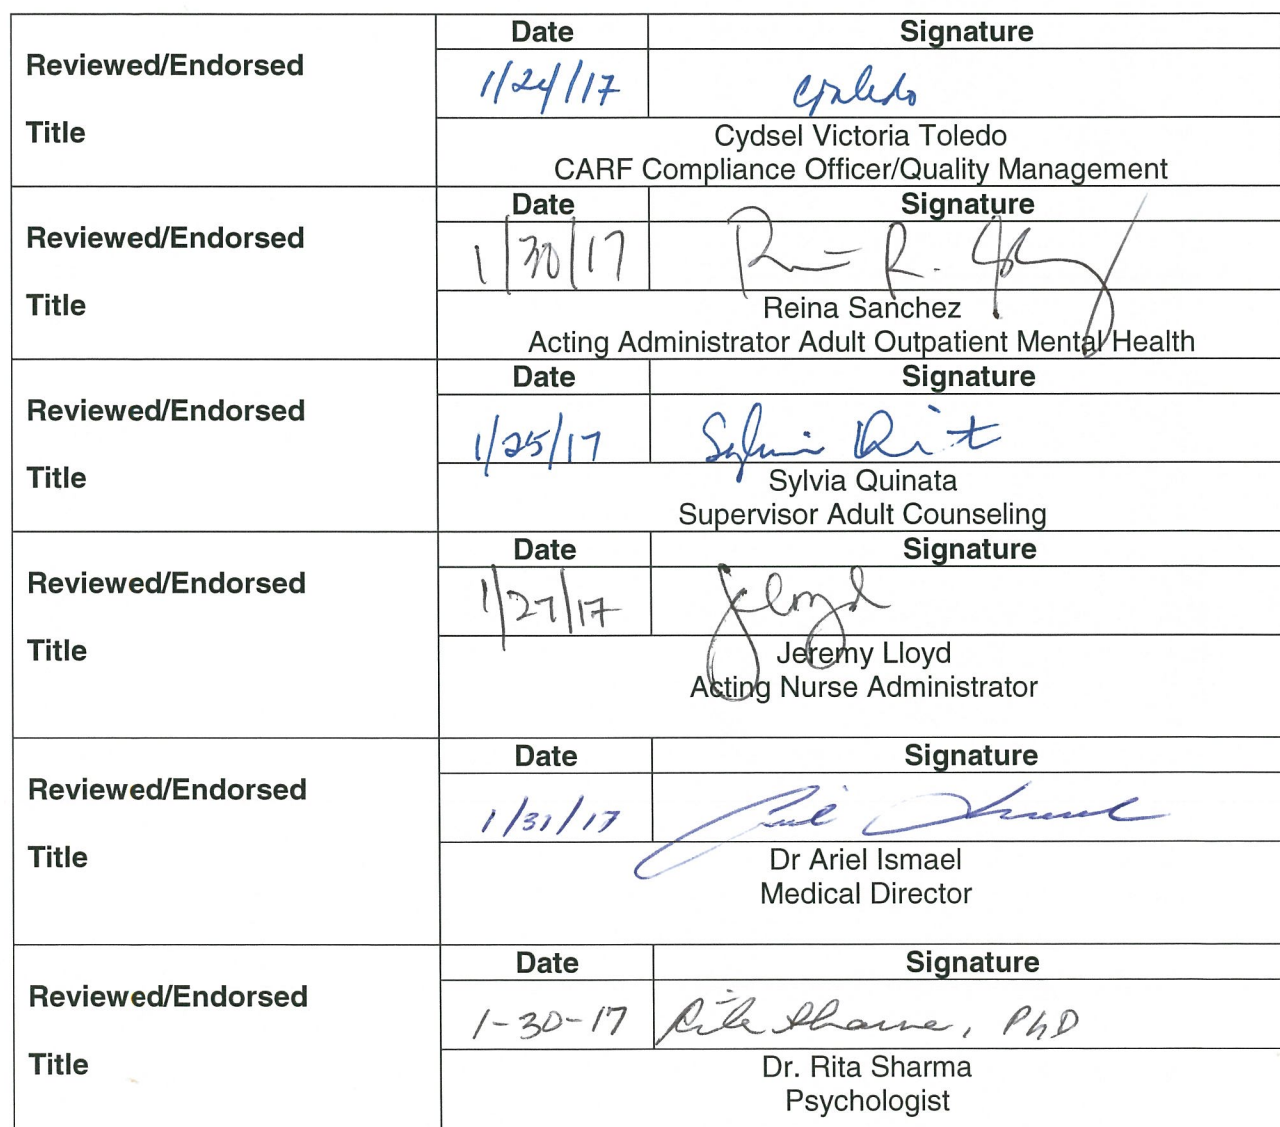 Date Signature
Reviewed/Endorsed
1/24/17 CJToledo
Title
Cydsel Victoria Toledo
CARF Compliance Officer/Quality Management
Date Signature
Reviewed/Endorsed
1/30/17
Title
Reina Sanchez
Acting Administrator Adult Outpatient Mental Health
Date Signature
Reviewed/Endorsed
1/25/17
Title
Sylvia Quinata
Supervisor Adult Counseling
Date Signature
Reviewed/Endorsed
1/27/17 jlloyd
Title
Jeremy Lloyd
Acting Nurse Administrator
Date Signature
Reviewed/Endorsed
1/31/17
Title
Dr Ariel Ismael
Medical Director
Date Signature
Reviewed/Endorsed
1-30-17 Rita Sharma, PhD
Title
Dr. Rita Sharma
Psychologist